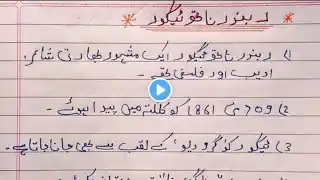 ربندر ناتھ ٹیگور
1) ربندر ناتھ ٹیگور ایک مشہور بھارتی شاعر،
ادیب اور فلسفی تھے۔
2) 09 مئی 1861 کو کلکتہ میں پیدا ہوئے۔
3) ٹیگور کو "گرودیو" کے لقب سے بھی جانا جاتا ہے۔